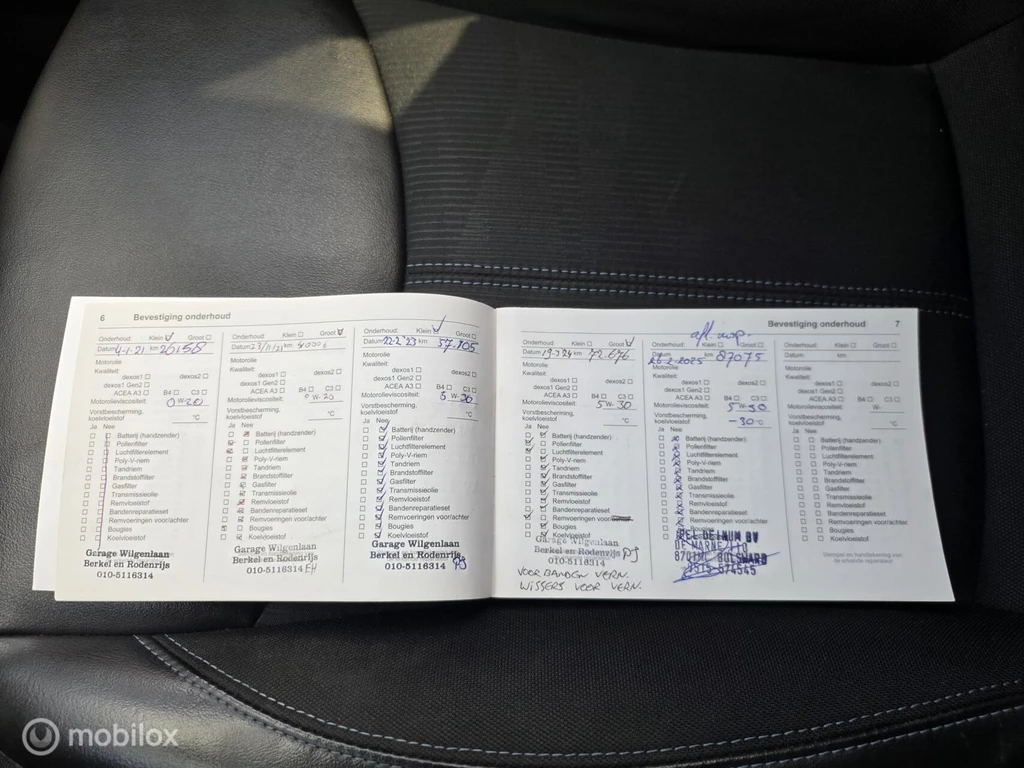 6 Bevestiging onderhoud
Onderhoud: Klein Groot
Datum 4-1-21 km 26158
Motorolie
Kwaliteit:
dexos1 dexos2
dexos1 Gen2
ACEA A3 B4 C3
Motorolieviscositeit: 0 W-20
Vorstbescherming,
koelvloeistof °C
Ja Nee
Batterij (handzender)
Pollenfilter
Luchtfilterelement
Poly-V-riem
Tandriem
Brandstoffilter
Gasfilter
Transmissieolie
Remvloeistof
Bandenreparatieset
Remvoeringen voor/achter
Bougies
Koelvloeistof
Garage Wilgenlaan
Berkel en Rodenrijs
010-5116314
Onderhoud: Klein Groot
Datum 23/11/21 km
Motorolie
Kwaliteit:
dexos1 dexos2
dexos1 Gen2
ACEA A3 B4 C3
Motorolieviscositeit: 0 W-20
Vorstbescherming,
koelvloeistof °C
Ja Nee
Batterij (handzender)
Pollenfilter
Luchtfilterelement
Poly-V-riem
Tandriem
Brandstoffilter
Gasfilter
Transmissieolie
Remvloeistof
Bandenreparatieset
Remvoeringen voor/achter
Bougies
Koelvloeistof
Garage Wilgenlaan
Berkel en Rodenrijs
010-5116314 EH
Onderhoud: Klein Groot
Datum 22-2-'23 km 57.105
Motorolie
Kwaliteit:
dexos1 dexos2
dexos1 Gen2
ACEA A3 B4 C3
Motorolieviscositeit: 5 W-30
Vorstbescherming,
koelvloeistof °C
Ja Nee
Batterij (handzender)
Pollenfilter
Luchtfilterelement
Poly-V-riem
Tandriem
Brandstoffilter
Gasfilter
Transmissieolie
Remvloeistof
Bandenreparatieset
Remvoeringen voor/achter
Bougies
Koelvloeistof
Garage Wilgenlaan
Berkel en Rodenrijs
010-5116314
Bevestiging onderhoud 7
Onderhoud: Klein Groot
Datum 19-3'24 km 72.676
Motorolie
Kwaliteit:
dexos1 dexos2
dexos1 Gen2
ACEA A3 B4 C3
Motorolieviscositeit: 5 W-30
Vorstbescherming,
koelvloeistof °C
Ja Nee
Batterij (handzender)
Pollenfilter
Luchtfilterelement
Poly-V-riem
Tandriem
Brandstoffilter
Gasfilter
Transmissieolie
Remvloeistof
Bandenreparatieset
Remvoeringen voor
Bougies
Koelvloeistof
Garage Wilgenlaan
Berkel en Rodenrijs
010-5116314
VOOR BANDEN VERN.
WISSERS VOOR VERN.
afl.
26-2-2025 87075
Motorolie
Kwaliteit:
dexos1 dexos2
dexos1 Gen2
ACEA A3 B4 C3
Motorolieviscositeit: 5 W-30
Vorstbescherming,
koelvloeistof -30 °C
Ja Nee
Batterij (handzender)
Pollenfilter
Luchtfilterelement
Poly-V-riem
Tandriem
Brandstoffilter
Gasfilter
Transmissieolie
Remvloeistof
Bandenreparatieset
Remvoeringen voor/achter
Bougies
BV
DE MARNE 110
BOLSWARD
0515-574545
Onderhoud: Klein Groot
Datum km
Motorolie
Kwaliteit:
dexos1 dexos2
dexos1 Gen2
ACEA A3 B4 C3
Motorolieviscositeit: W-
Vorstbescherming,
koelvloeistof °C
Ja Nee
Batterij (handzender)
Pollenfilter
Luchtfilterelement
Poly-V-riem
Tandriem
Brandstoffilter
Gasfilter
Transmissieolie
Remvloeistof
Bandenreparatieset
Remvoeringen voor/achter
Bougies
Koelvloeistof
Stempel en handtekening van
de erkende reparateur
mobilox